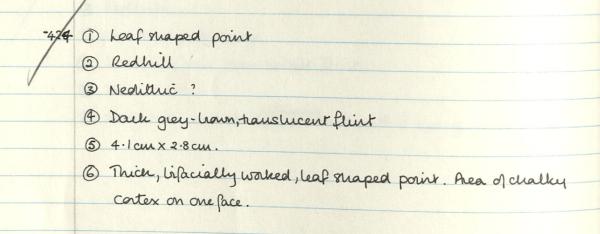 -424 ① Leaf shaped point
② Redhill
③ Neolithic ?
④ Dark grey-brown, translucent flint
⑤ 4.1cm x 2.8cm.
⑥ Thick, bifacially worked, leaf shaped point. Area of chalky
cortex on one face.